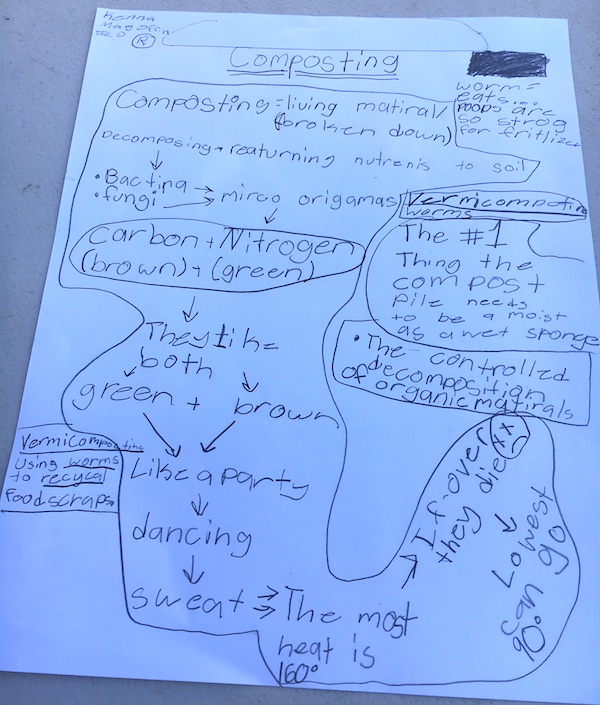 Kenna
R
Composting
worm =
eats...
poops are
so strog
for fritlizer
Composting = living matiral/
(broken down)
Decomposing → reaturning nutrenis to soil
• Bactiria → mirco origamas
• fungi →
Carbon + Nitrogen
(brown) + (green)
They like
both
green + brown
Like a party
dancing
sweat ⇒ The most
heat is
160°
If over
they die
xx
Lowest
can go
90°
Vermicomposting
worms
The #1
Thing the
compost
pile needs
to be a moist
as a wet sponge
• The controlled
of decomposition
organic matirals
Vermicomposting
Using worms
to recycal
food scraps